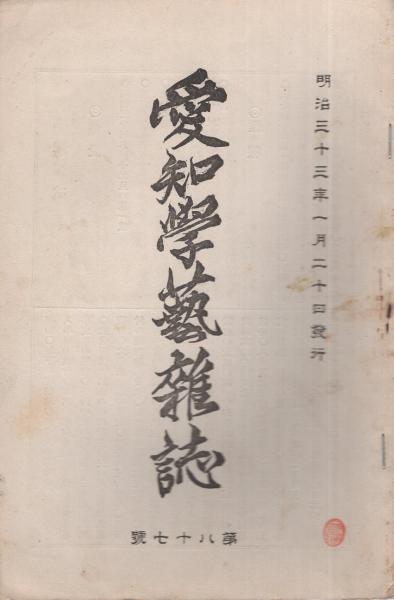 明治三十三年一月二十日發行
愛知學藝雜誌
第八十七號